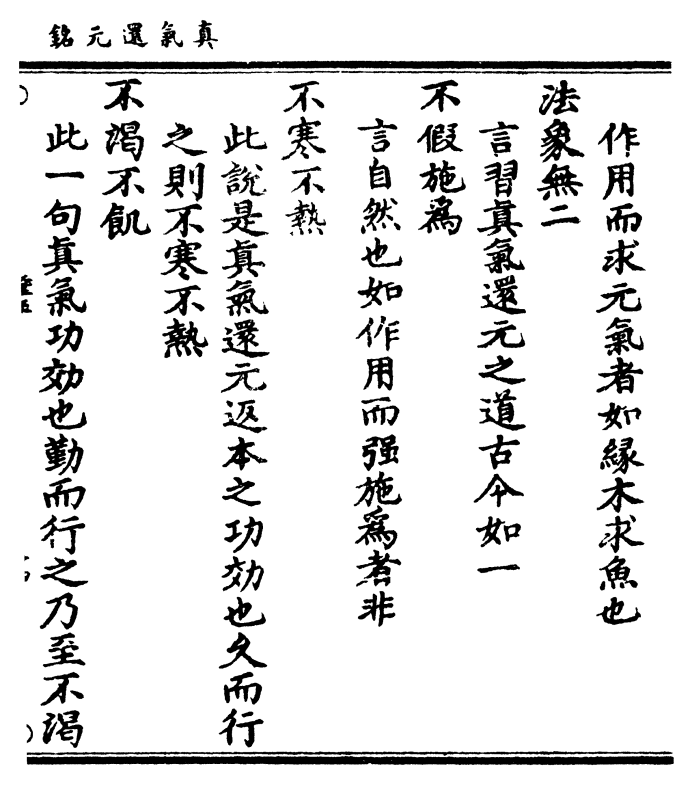 真氣還元銘
作用而求元氣者如緣木求魚也
法象無二
言習眞氣還元之道古今如一
不假施爲
言自然也如作用而强施爲者非
不寒不熱
此説是眞氣還元返本之功効也久而行
之則不寒不熱
不渴不飢
此一句眞氣功効也勤而行之乃至不渴